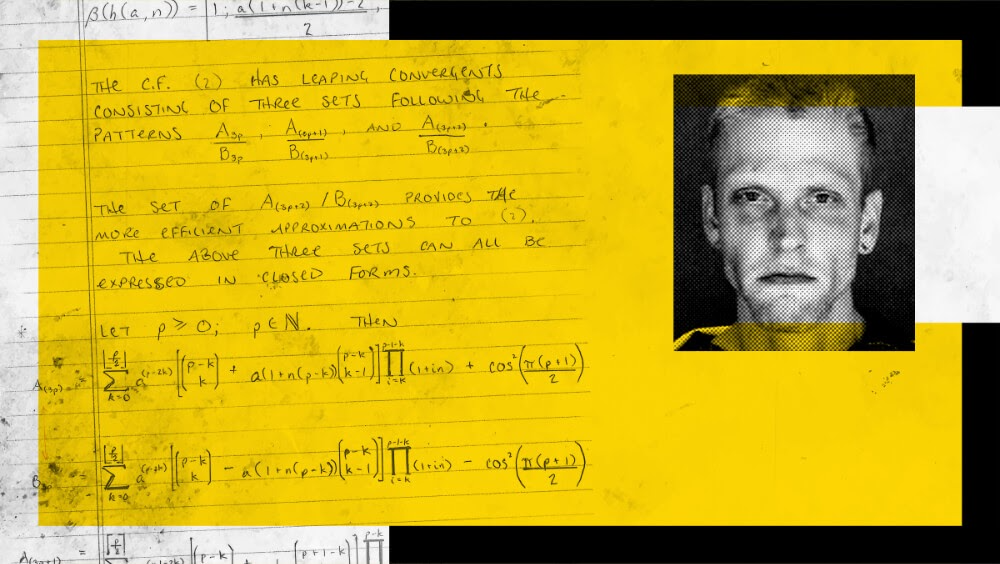 β(h(a,n)) = [1; a(1+n(k-1))-2,
2
THE C.F. (2) HAS LEAPING CONVERGENTS
CONSISTING OF THREE SETS FOLLOWING THE
PATTERNS A₃ₚ/B₃ₚ, A₍₃ₚ₊₁₎/B₍₃ₚ₊₁₎, AND A₍₃ₚ₊₂₎/B₍₃ₚ₊₂₎.
THE SET OF A₍₃ₚ₊₂₎/B₍₃ₚ₊₂₎ PROVIDES THE
MORE EFFICIENT APPROXIMATIONS TO (2).
THE ABOVE THREE SETS CAN ALL BE
EXPRESSED IN CLOSED FORMS.
LET p ≥ 0; p ∈ ℕ. THEN
A₍₃ₚ₎ = ∑_{k=0}^{⌊p/2⌋} a^{(p-2k)} [(p-k k) + a(1+n(p-k))(p-k k-1)] ∏_{i=k}^{p-1-k} (1+in) + cos²(π(p+1)/2)
B = ∑_{k=0}^{⌊p/2⌋} a^{(p-2k)} [(p-k k) - a(1+n(p-k))(p-k k-1)] ∏_{i=k}^{p-1-k} (1+in) - cos²(π(p+1)/2)
A₍₃ₚ₊₁₎ = [(p-k) + [(p+1-k) ∏^{p-k}